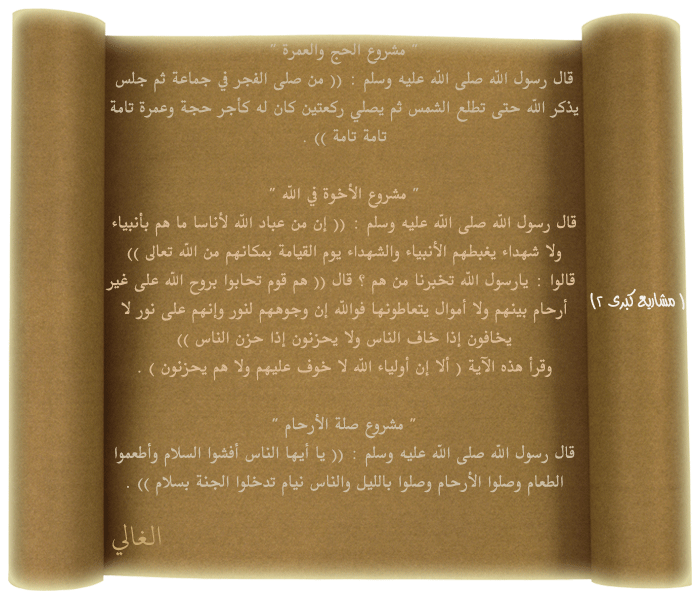 " مشروع الحج والعمرة "
قال رسول الله صلى الله عليه وسلم : (( من صلى الفجر في جماعة ثم جلس
يذكر الله حتى تطلع الشمس ثم يصلي ركعتين كان له كأجر حجة وعمرة تامة
تامة تامة )) .
" مشروع الأخوة في الله "
قال رسول الله صلى الله عليه وسلم : (( إن من عباد الله لأناسا ما هم بأنبياء
ولا شهداء يغبطهم الأنبياء والشهداء يوم القيامة بمكانهم من الله تعالى ))
قالوا : يارسول الله تخبرنا من هم ؟ قال (( هم قوم تحابوا بروح الله على غير
أرحام بينهم ولا أموال يتعاطونها فوالله إن وجوههم لنور وإنهم على نور لا
يخافون إذا خاف الناس ولا يحزنون إذا حزن الناس ))
وقرأ هذه الآية ( ألا إن أولياء الله لا خوف عليهم ولا هم يحزنون ) .
" مشروع صلة الأرحام "
قال رسول الله صلى الله عليه وسلم : (( يا أيها الناس أفشوا السلام وأطعموا
الطعام وصلوا الأرحام وصلوا بالليل والناس نيام تدخلوا الجنة بسلام )) .
الغالي
( مشاريع كبرى ٢)